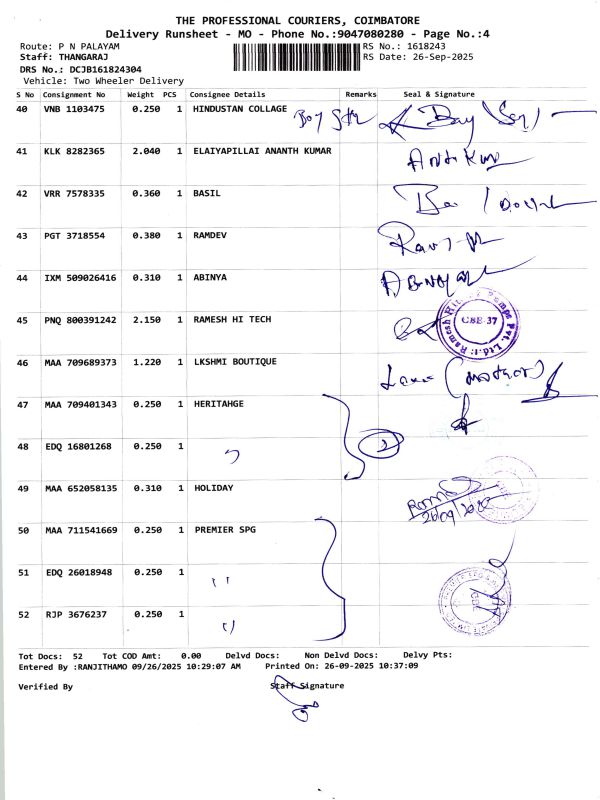 THE PROFESSIONAL COURIERS, COIMBATORE
Delivery Runsheet - MO - Phone No.:9047080280 - Page No.:4
Route: P N PALAYAM RS No.: 1618243
Staff: THANGARAJ RS Date: 26-Sep-2025
DRS No.: DCJB161824304
Vehicle: Two Wheeler Delivery
S No Consignment No Weight PCS Consignee Details Remarks Seal & Signature
40 VNB 1103475 0.250 1 HINDUSTAN COLLAGE
41 KLK 8282365 2.040 1 ELAIYAPILLAI ANANTH KUMAR
42 VRR 7578335 0.360 1 BASIL
43 PGT 3718554 0.380 1 RAMDEV
44 IXM 509026416 0.310 1 ABINYA
45 PNQ 800391242 2.150 1 RAMESH HI TECH CBE-37
46 MAA 709689373 1.220 1 LKSHMI BOUTIQUE (mother)
47 MAA 709401343 0.250 1 HERITAHGE
48 EDQ 16801268 0.250 1 " 2
49 MAA 652058135 0.310 1 HOLIDAY
50 MAA 711541669 0.250 1 PREMIER SPG
51 EDQ 26018948 0.250 1 "
52 RJP 3676237 0.250 1 "
Tot Docs: 52 Tot COD Amt: 0.00 Delvd Docs: Non Delvd Docs: Delvy Pts:
Entered By :RANJITHAMO 09/26/2025 10:29:07 AM Printed On: 26-09-2025 10:37:09
Verified By Staff Signature